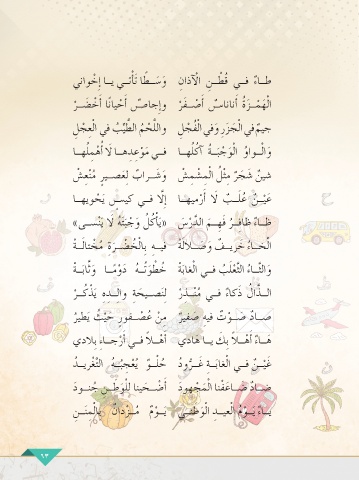 طـاءٌ فـي قُطْـنِ الْآذانِ وَسَـطًا تَأْتـي يـا إِخْواني
الْهَمْـزَةُ أَناناسٌ أَصْـفَرْ وإِجاصٌ أَحْيانًا أَخْضَـرْ
جيمٌ في الْجَزَرِ وَفي الْفُجْلِ واللَّحْمُ الطَّيِّبُ في العِجْلِ
وَالْـواوُ الْوَجْبَـةُ آكُلُهـا فـي مَوْعِدِهـا لَا أُهْمِلُهـا
شينٌ شَجَرٌ مِثْلُ الْمِشْمِشْ وَشَـرابٌ لِعَصيـرٍ مُنْعِشْ
عَيْـنٌ عُلَـبٌ لَا أَرْميهَـا إِلّا فـي كيـسٍ يَحْويهـا
ظـاءٌ ظافِـرُ فَهِـمَ الدَّرْسَ «يَأْكُلُ وَجْبَتَهُ لَا يَنْسـى»
الْخَـاءُ خَريـفٌ وَضَـلالَهْ فيـهِ بِالْخُضْـرَةِ مُخْتالَـهْ
وَالثّـاءُ الثَّعْلَبُ فـي الْغابَهْ خُطُوَتُـهُ دَوْمًـا وَثّابَـهْ
الـذّالُ ذَكاءٌ فـي مُنْـذِرْ لِنَصيحَةِ والِـدِهِ يَذْكُـرْ
صـادٌ صَـوْتٌ فيهِ صَفيرٌ مِنْ عُصْـفورٍ حَيْثُ يَطيرُ
هَـاءٌ أَهْـلًا بكَ يـا هَادي أَهْـلًا فـي أَرْجـاءِ بِلادي
غَيْـنٌ في الْغَابَـةِ غَـرُّودُ حُلْـوٌ يُعْجِبُـهُ التَّغْريـدُ
ضـادٌ ضـاعَفْنا الْمَجْهودَ أَضْـحَينا لِلْوَطَـنِ جُنـودَ
يَـاءٌ يَـوْمُ الْعيـدِ الْوَطَنـي يَـوْمٌ مُـزْدانٌ بِالْمِنَـنِ
٩٣